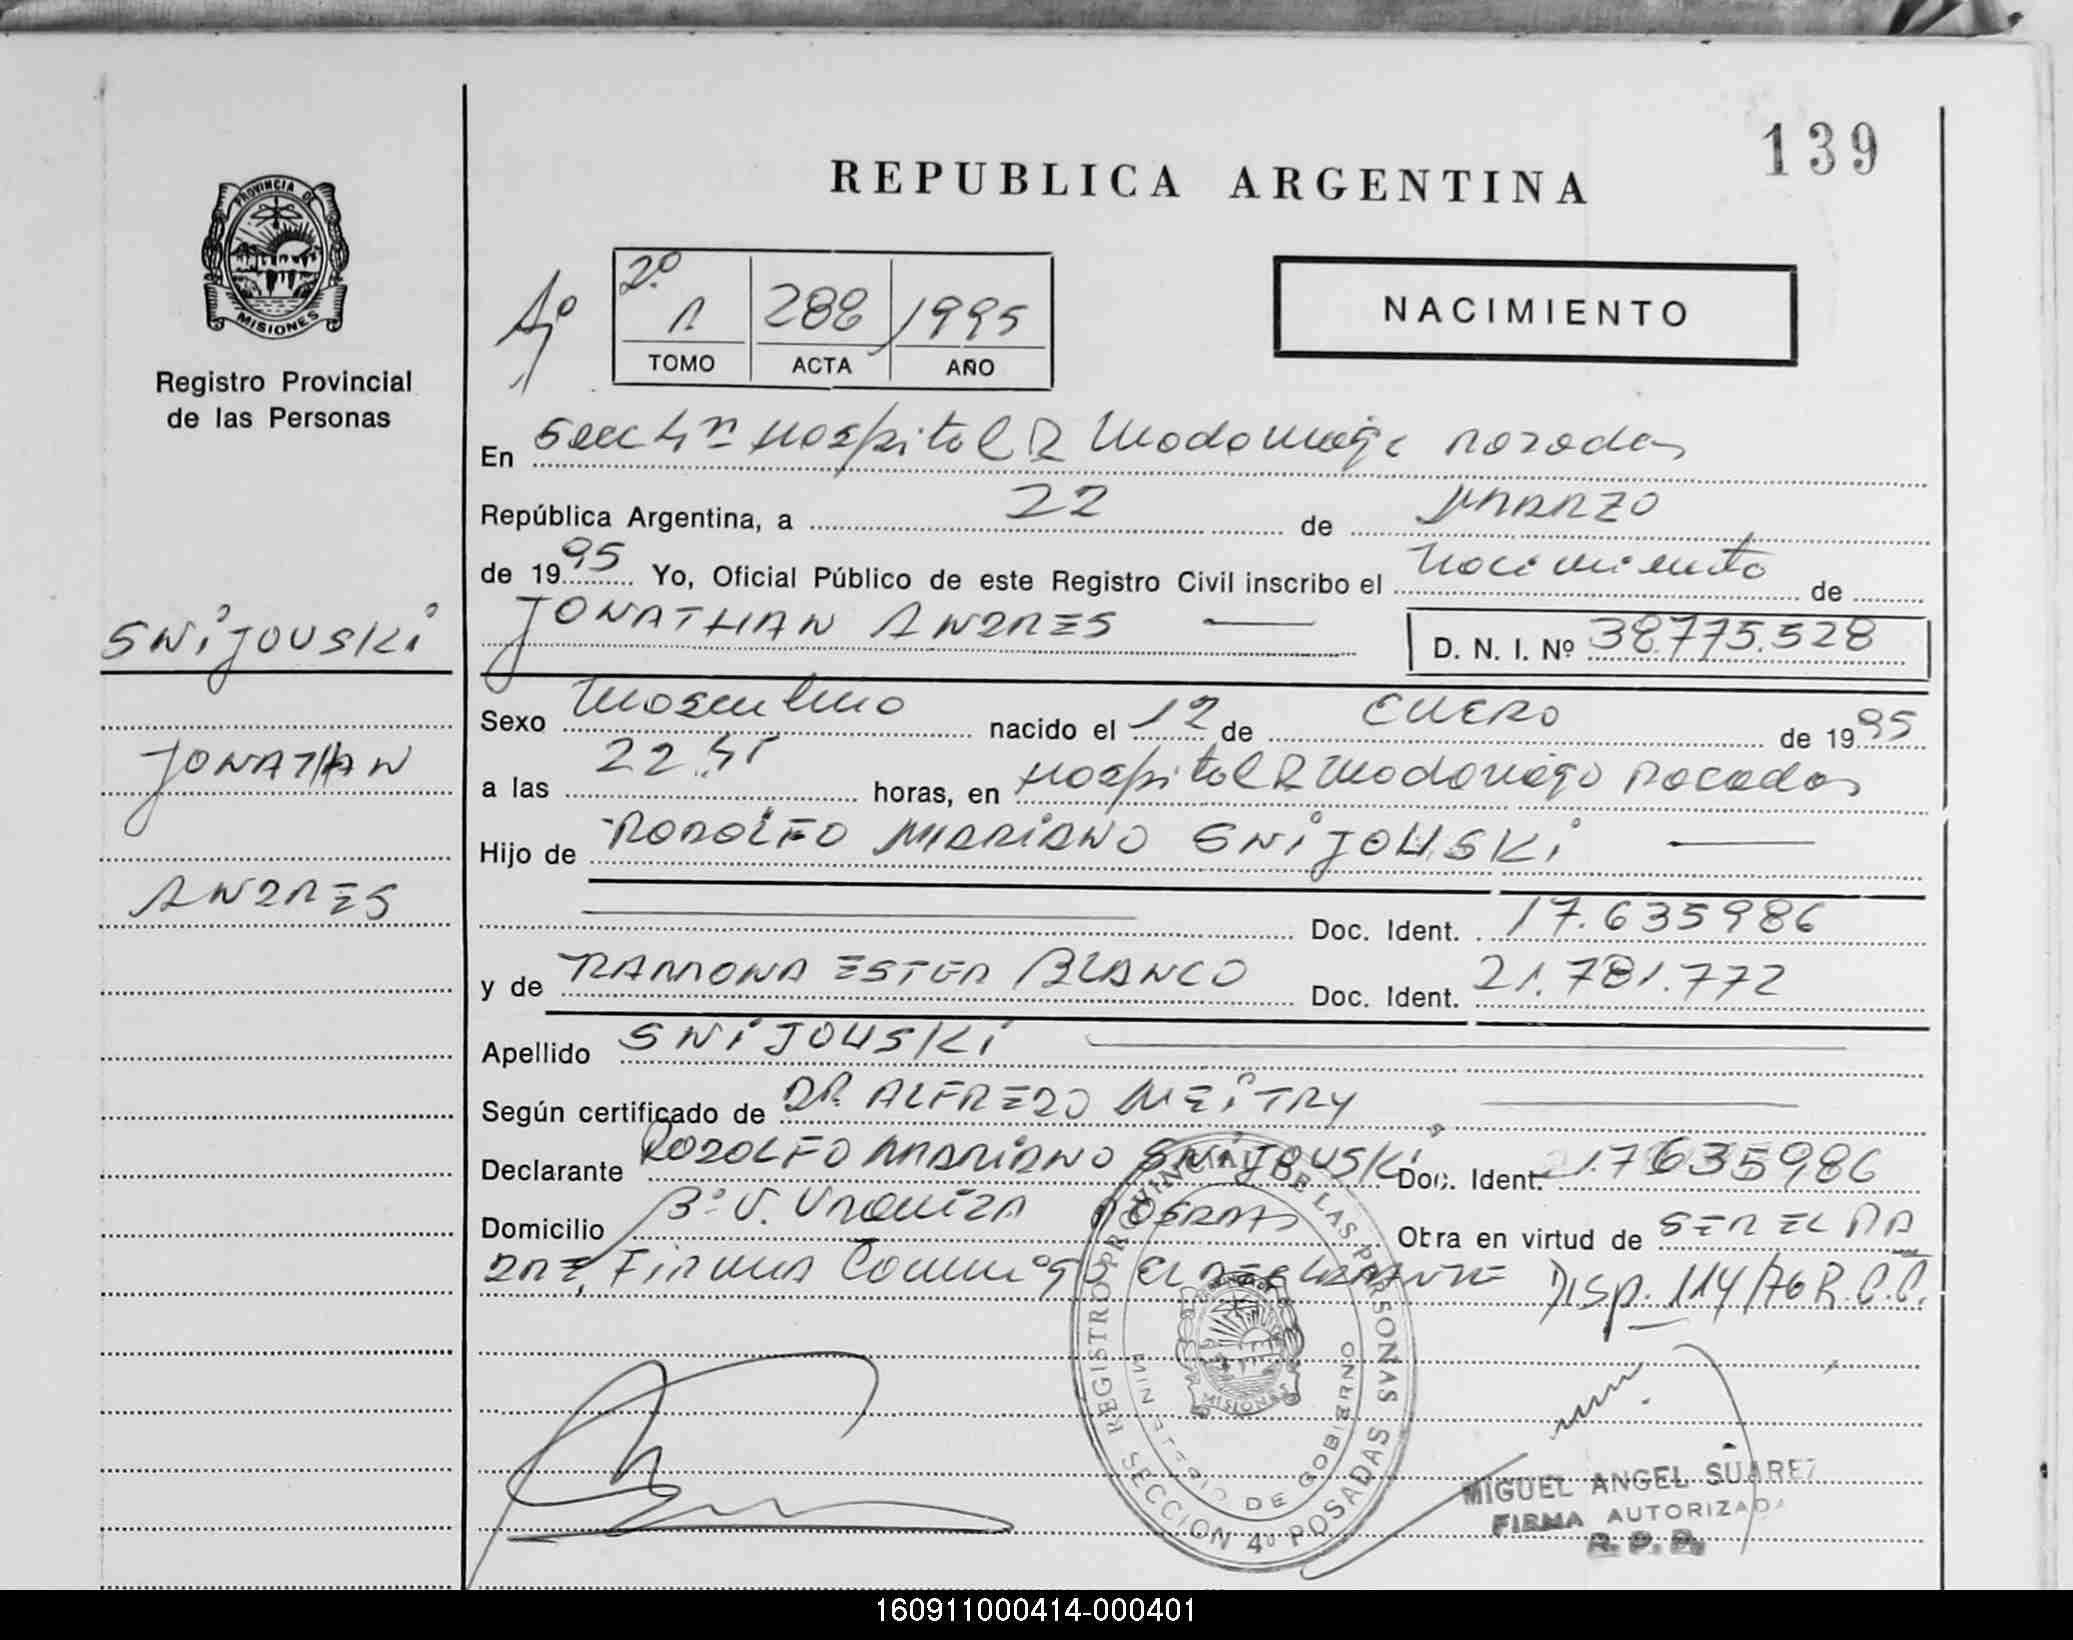 139
REPUBLICA ARGENTINA
PROVINCIA DE
MISIONES
Registro Provincial
de las Personas
2º
1 288 1995
TOMO ACTA AÑO
NACIMIENTO
En Secc 4ª Hospital R Madariaga Posadas
República Argentina, a 22 de MARZO
de 1995 Yo, Oficial Público de este Registro Civil inscribo el Nacimiento de
JONATHAN ANDRES
D. N. I. Nº 38.775.528
SNIJOVSKI
JONATHAN
ANDRES
Sexo Masculino nacido el 12 de ENERO de 1995
a las 22.45 horas, en Hospital R Madariaga Posadas
Hijo de RODOLFO MARIANO SNIJOUSKI
Doc. Ident. 17.635986
y de RAMONA ESTER BLANCO Doc. Ident. 21.781.772
Apellido SNIJOUSKI
Según certificado de DR ALFREDO MEITRY
Declarante RODOLFO MARIANO SNIJOUSKI Doc. Ident. 17635986
Domicilio Bº U. URQUIZA POSADAS Obra en virtud de SER EL PA
DRE, FIRMA Conmigo El DECLARANTE Disp. 114/76 R.C.C.
REGISTRO PROVINCIAL DE LAS PERSONAS
MINISTERIO DE GOBIERNO
MISIONES
SECCION 4º POSADAS
MIGUEL ANGEL SUAREZ
FIRMA AUTORIZADA
R. P. P.
160911000414-000401